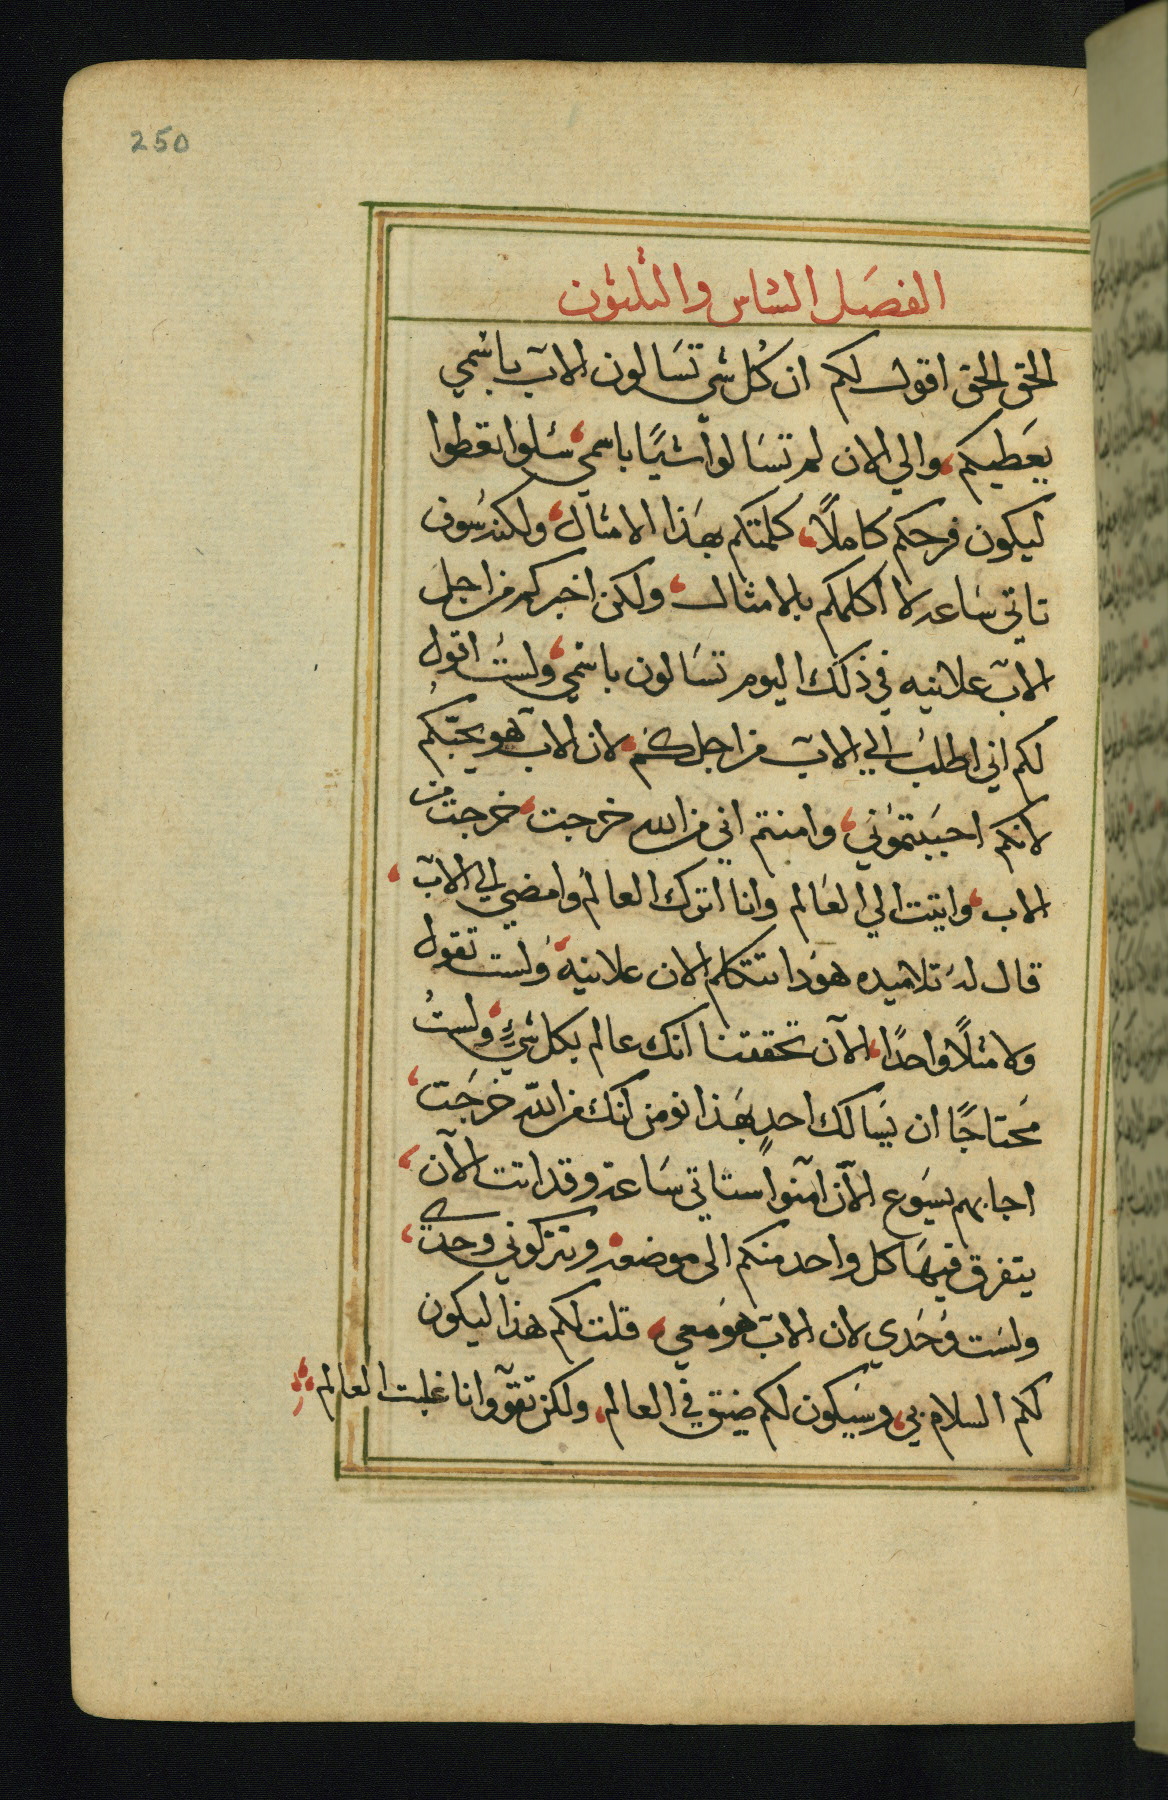 250
الفصل السادس والثلثون
الحق الحق اقول لكم ان كُل شي تسَالون الاب باسمي
يعَطيكم، والي الان لم تسَالوا شيًا باسمي، سَلوا تعطوا
ليكون فرحكم كاملًا، كلمتكم بهَذا الامثال، ولكن سَوف
تاتي سَاعه لا اكلمكم بالامثال، ولكن اخبركم من اجل
الاب علانيه في ذلك اليوم تسَالون باسمي، ولست اقول
لكم اني اطلب الي الاب من اجلكم، لان الاب هو يحبّكم
لانكم احبَبتموني، وامنتم اني من الله خرجت، خرجت من
الاب، واتيت الي العَالم وانا اترك العالم وامضي الي الاب،
قال له تلاميده هوَدا تتكلم الان علانيه، ولست تقول
ولا مثلًا واحدًا، الآن تحققنا انك عالم بكل شيٍ، ولست
مَحتاجًا ان يسَالك احدٍ بهَذا نومن انك من الله خرَجت،
اجابهم يسَوع الآن آمنوا ستاتي سَاعة وقد اتت الآن،
يتفرق فيهَا كل واحد منكم الى موضعه، وتتركوني وحدي،
ولسَت وَحَدي لان الاب هوَ معي، قلت لكم هذا ليكون
لكم السلام بي، وسَيكون لكم ضيق في العالم، ولكن تقووا انا غلبت العالم